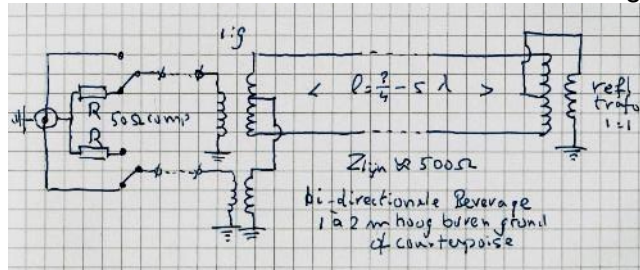 1:9
R
50Ω comp
R
< l = ¾ - 5 λ >
refl
trafo
1:1
Zlijn ≈ 500Ω
bi-directionele Beverage
1 à 2 m hoog boven grond
of counterpoise